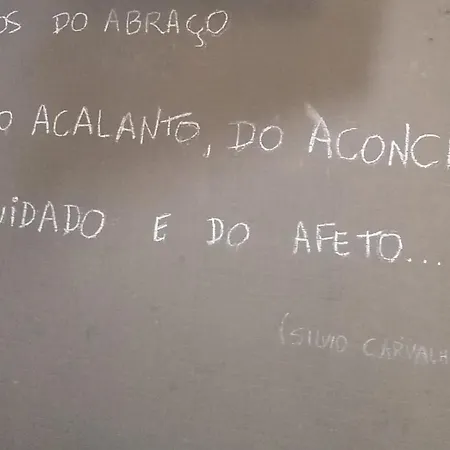 OS DO ABRAÇO
O ACALANTO, DO ACONC
UIDADO E DO AFETO...
(SILVIO CARVALH